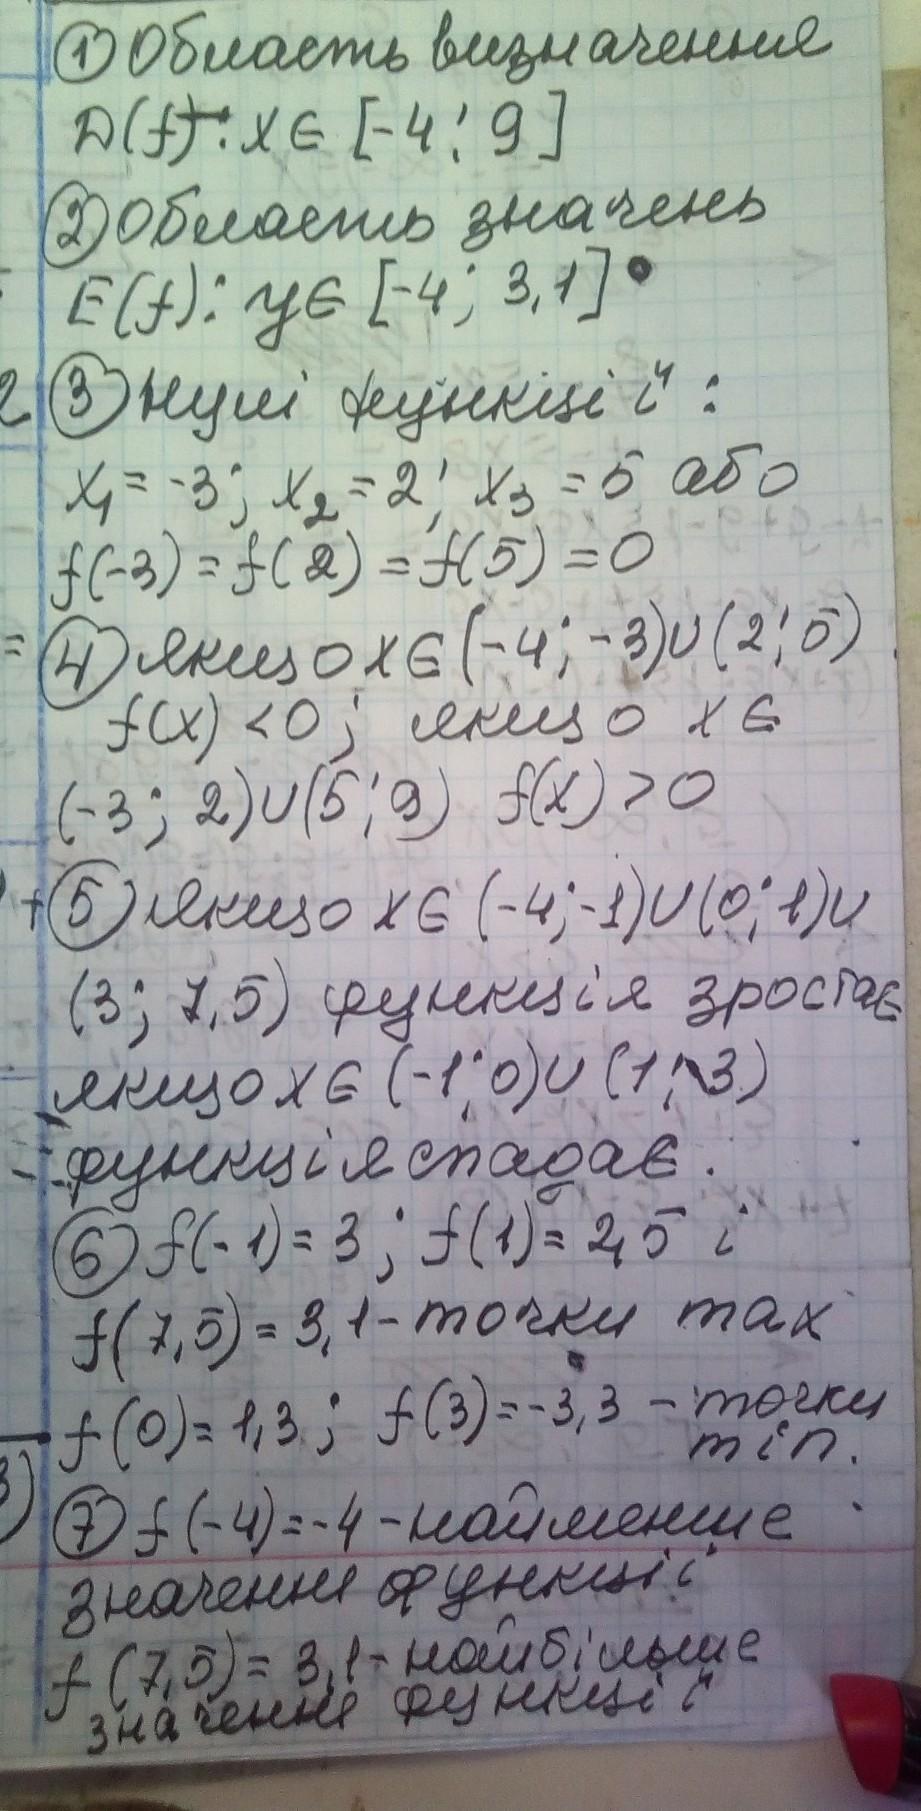 ① Область визначення
D(f): x ∈ [-4; 9]
② Область значень
E(f): y ∈ [-4; 3,1]
③ Нулі функції:
x₁ = -3; x₂ = 2; x₃ = 5 або
f(-3) = f(2) = f(5) = 0
④ якщо x ∈ (-4; -3)∪(2; 5)
f(x) < 0; якщо x ∈
(-3; 2)∪(5; 9) f(x) > 0
⑤ якщо x ∈ (-4; -1)∪(0; 1)∪
(3; 7,5) функція зростає
якщо x ∈ (-1; 0)∪(1; 3)
функція спадає.
⑥ f(-1) = 3; f(1) = 2,5 і
f(7,5) = 3,1 - точки max
f(0) = 1,3; f(3) = -3,3 - точки
min.
⑦ f(-4) = -4 - найменше
значення функції
f(7,5) = 3,1 - найбільше
значення функції